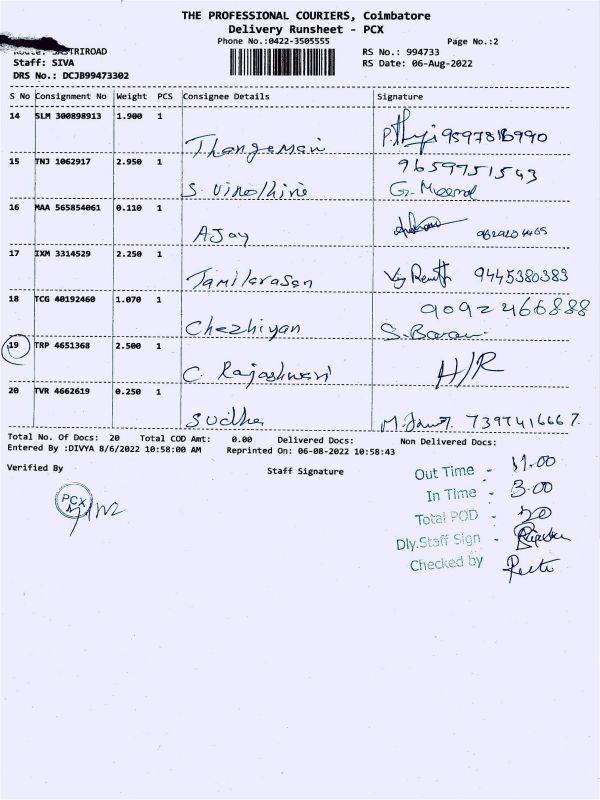 THE PROFESSIONAL COURIERS, Coimbatore
Delivery Runsheet - PCX
Phone No.:0422-3505555 Page No.:2
Staff: SIVA RS No.: 994733
RS Date: 06-Aug-2022
DRS No.: DCJB99473302
S No Consignment No Weight PCS Consignee Details Signature
14 SLM 300898913 1.900 1
Thangamani
15 TNJ 1062917 2.950 1 9659951543
S. Vinothini G. Meena
16 MAA 565854061 0.110 1
AJay
17 IXM 3314529 2.250 1
Tamilarasan 9445380383
18 TCG 40192460 1.070 1 9092466888
Chezhiyan S. Baran
19 TRP 4651368 2.500 1
C. Rajashwari H/R
20 TVR 4662619 0.250 1
Sudha 7397416667
Total No. Of Docs: 20 Total COD Amt: 0.00 Delivered Docs: Non Delivered Docs:
Entered By :DIVYA 8/6/2022 10:58:00 AM Reprinted On: 06-08-2022 10:58:43
Verified By Staff Signature
PCX
Out Time - 11.00
In Time - 3.00
Total POD - 20
Dly.Staff Sign -
Checked by